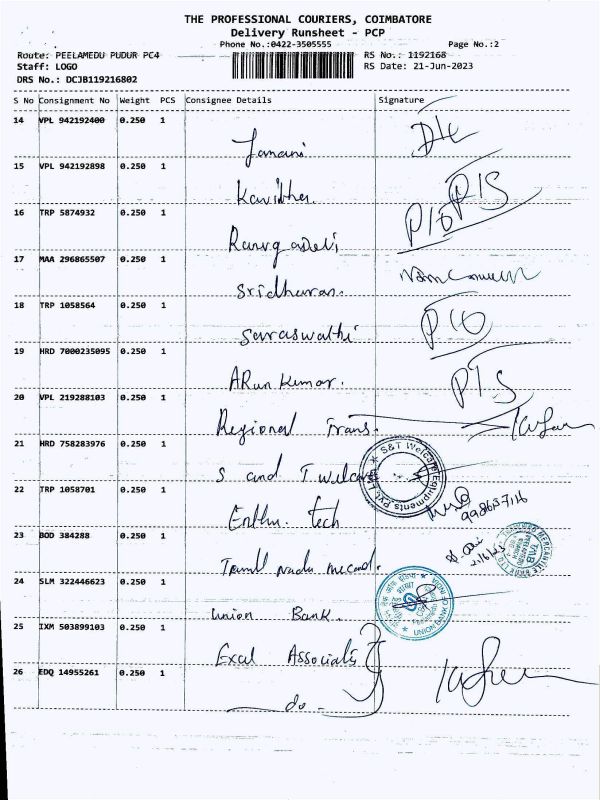 THE PROFESSIONAL COURIERS, COIMBATORE
Delivery Runsheet - PCP
Phone No.:0422-3505555 Page No.:2
Route: PEELAMEDU PUDUR PC4 RS No.: 1192168
Staff: LOGO RS Date: 21-Jun-2023
DRS No.: DCJB119216802
S No Consignment No Weight PCS Consignee Details Signature
14 VPL 942192400 0.250 1
Janani
15 VPL 942192898 0.250 1
Kavitha
16 TRP 5874932 0.250 1
17 MAA 296865507 0.250 1
Sridharan.
18 TRP 1058564 0.250 1
Saraswathi
19 HRD 7000235095 0.250 1
ARun Kumar.
20 VPL 219288103 0.250 1
Regional Trans.
21 HRD 758283976 0.250 1
S and T welcare
S&T Welcare Equipments Pvt. Ltd
22 TRP 1058701 0.250 1
Enthu. tech
23 BOD 384288 0.250 1
Tamil nadu mecand.
24 SLM 322446623 0.250 1
union Bank.
UNION BANK OF INDIA
25 IXM 503899103 0.250 1
Excel Associats
26 EDQ 14955261 0.250 1
do